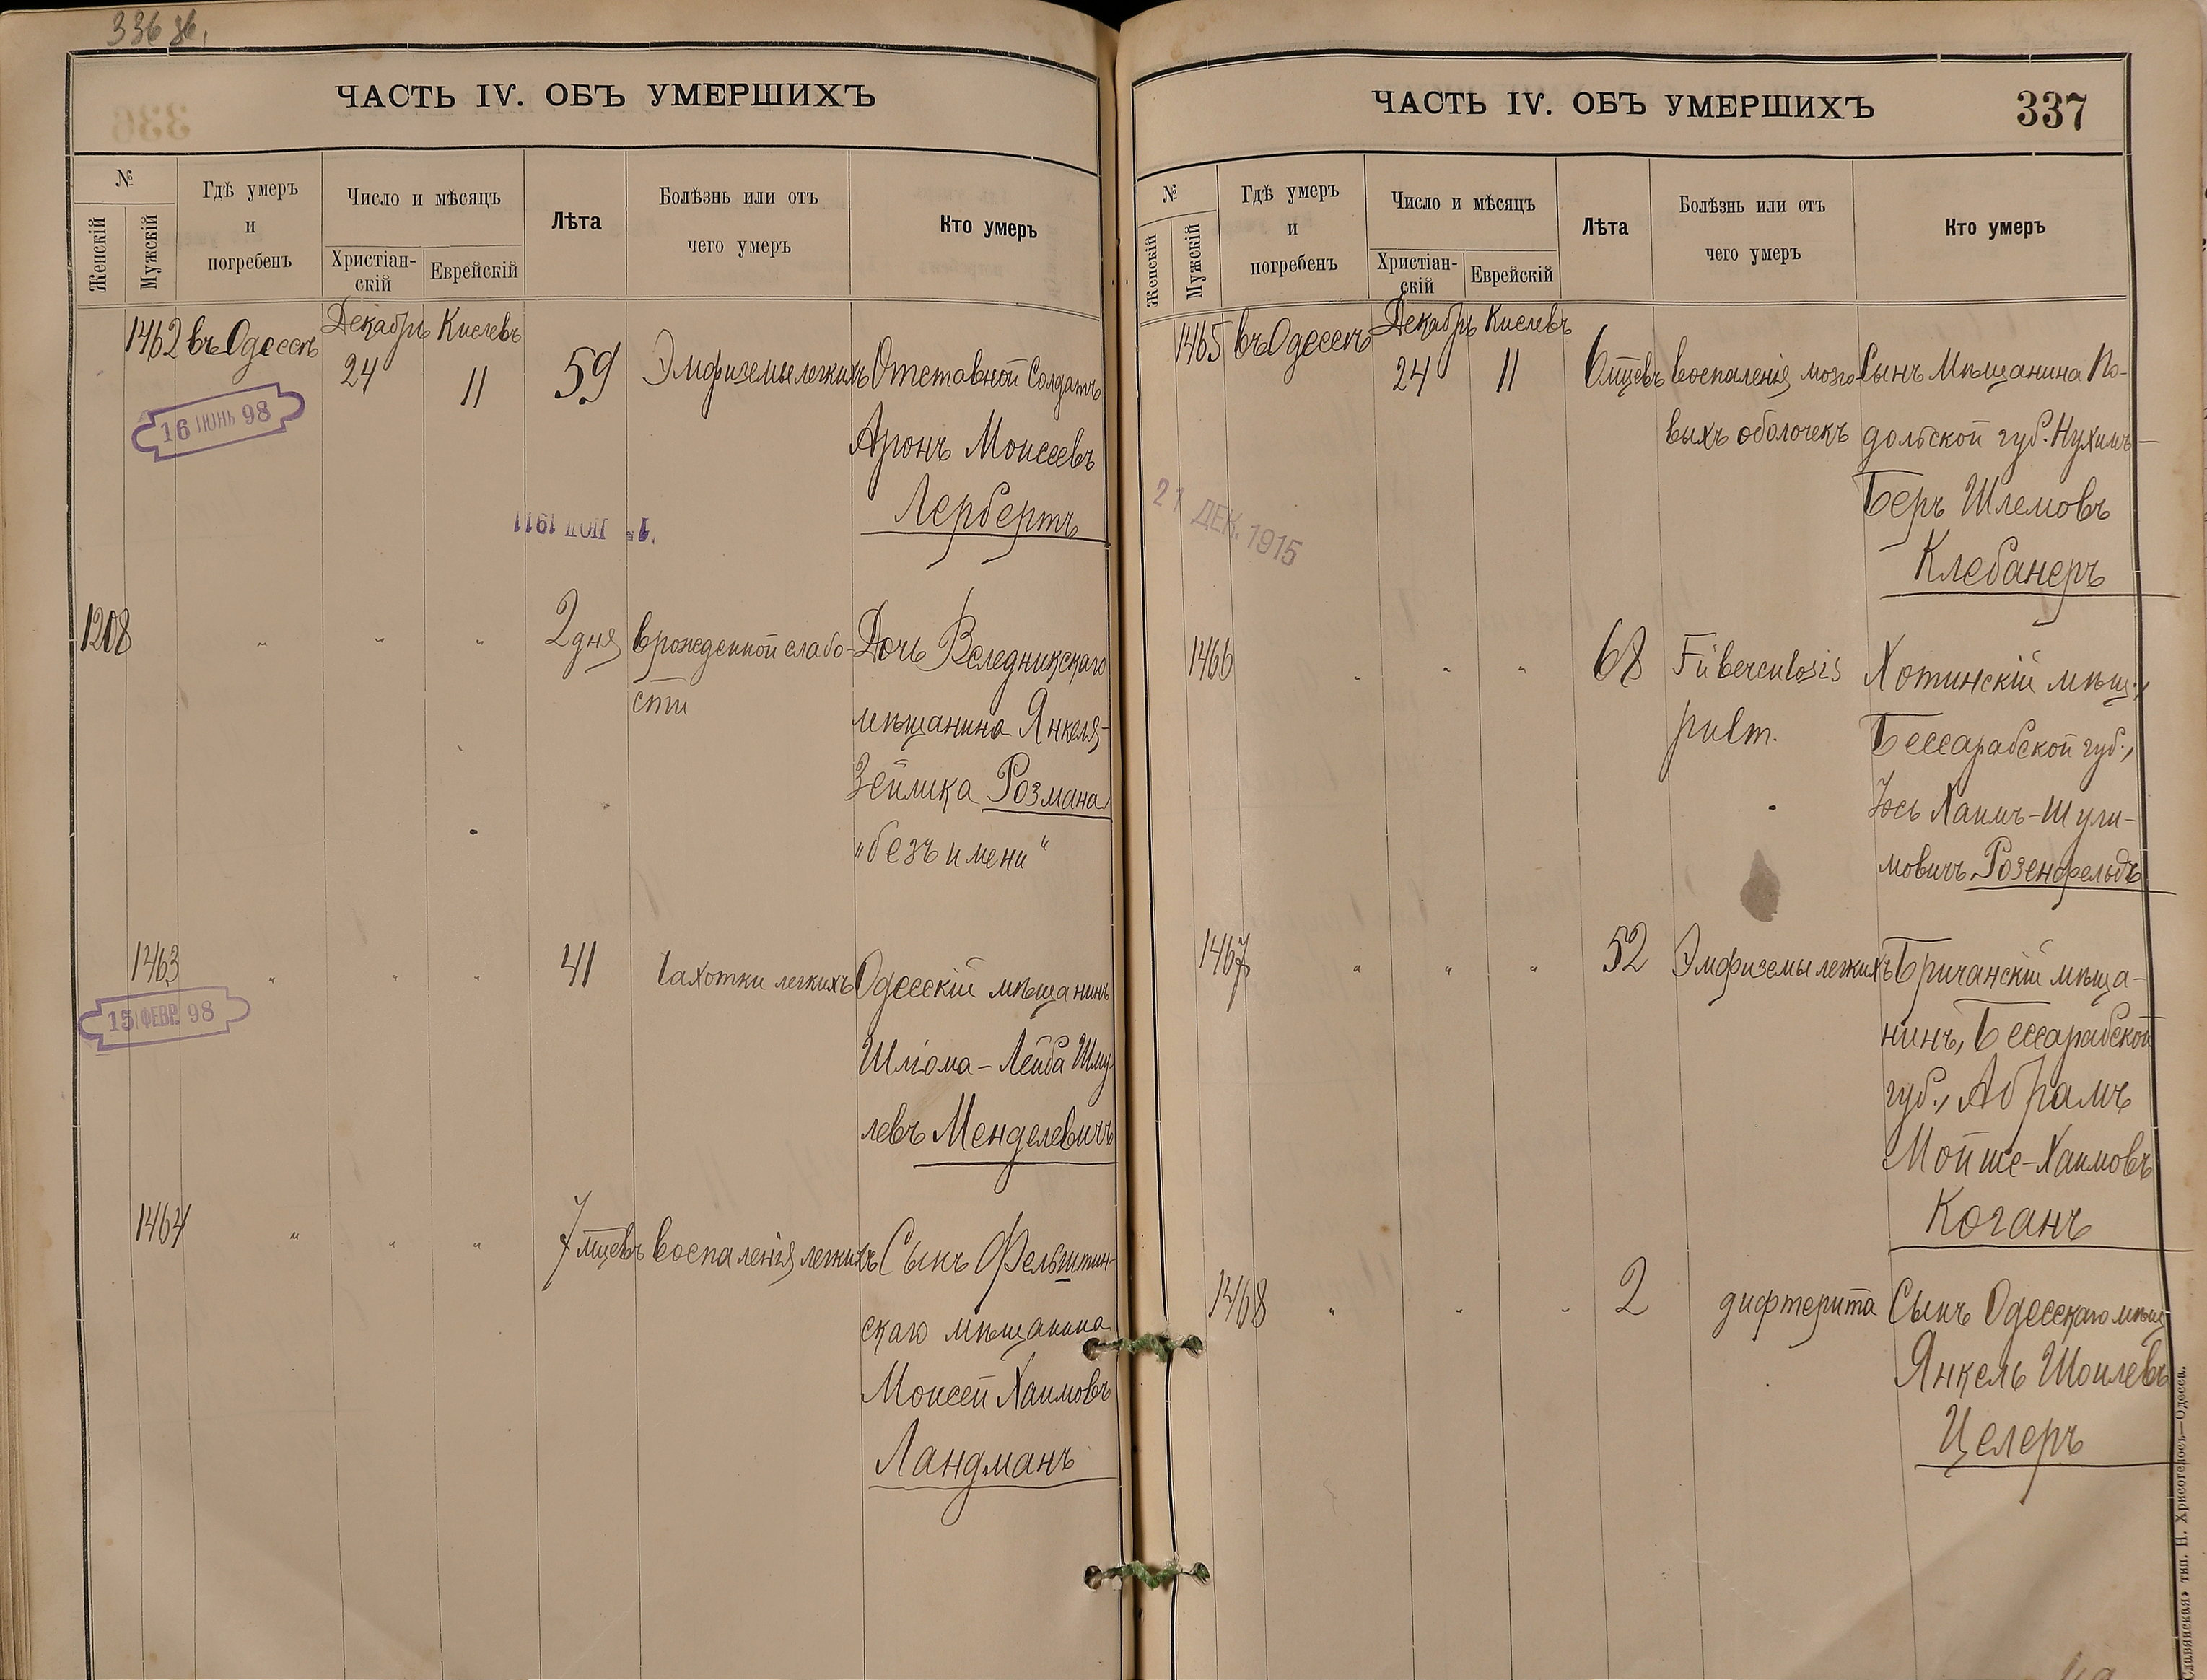 336 об.
ЧАСТЬ IV. ОБЪ УМЕРШИХЪ
№
Женскій
Мужскій
Гдѣ умеръ
и
погребенъ
Число и мѣсяцъ
Христіан-
скій
Еврейскій
Лѣта
Болѣзнь или отъ
чего умеръ
Кто умеръ
1462 въ Одессѣ Декабрь 24 Кислевъ 11 59 Эмфиземы легкихъ Отставной Солдатъ
Аронъ Моисеевъ
Лербертъ
16 ІЮНЬ 98
1911
1208 " " " 2 дня врожденной слабо- Дочь Веледникскаго
сти
мѣщанина Янкеля-
Зейлика Розмана
"безъ имени"
1463 " " " 41 Чахотки легкихъ Одесскій мѣщанинъ
15 ФЕВР. 98
Шліома-Лейба Шму-
левъ Менделевичъ
1464 " " " 7 мцевъ воспаленія легкихъ Сынъ Фельштин-
скаго мѣщанина
Моисей Хаимовъ
Ландманъ
ЧАСТЬ IV. ОБЪ УМЕРШИХЪ
337
№
Женскій
Мужскій
Гдѣ умеръ
и
погребенъ
Число и мѣсяцъ
Христіан-
скій
Еврейскій
Лѣта
Болѣзнь или отъ
чего умеръ
Кто умеръ
1465 въ Одессѣ Декабрь 24 Кислевъ 11 6 мцевъ воспаленія мозго- Сынъ Мѣщанина По-
выхъ оболочекъ дольской губ. Нухимъ-
Беръ Шлемовъ
Клебанеръ
21 ДЕК. 1915
1466 " " " 68 Tuberculosis Хотинскій мѣщ.,
pulm. Бессарабской губ.,
Іось Хаимъ-Шули-
мовичъ Розенфельдъ
1467 " " " 52 Эмфиземы легкихъ Бричанскій мѣща-
нинъ, Бессарабской
губ., Абрамъ
Мойше-Хаимовъ
Коганъ
1468 " " " 2 дифтерита Сынъ Одесскаго мѣщ
Янкель Шоилевъ
Целеръ
Славянская» тип. Н. Хрисогелосъ—Одесса.